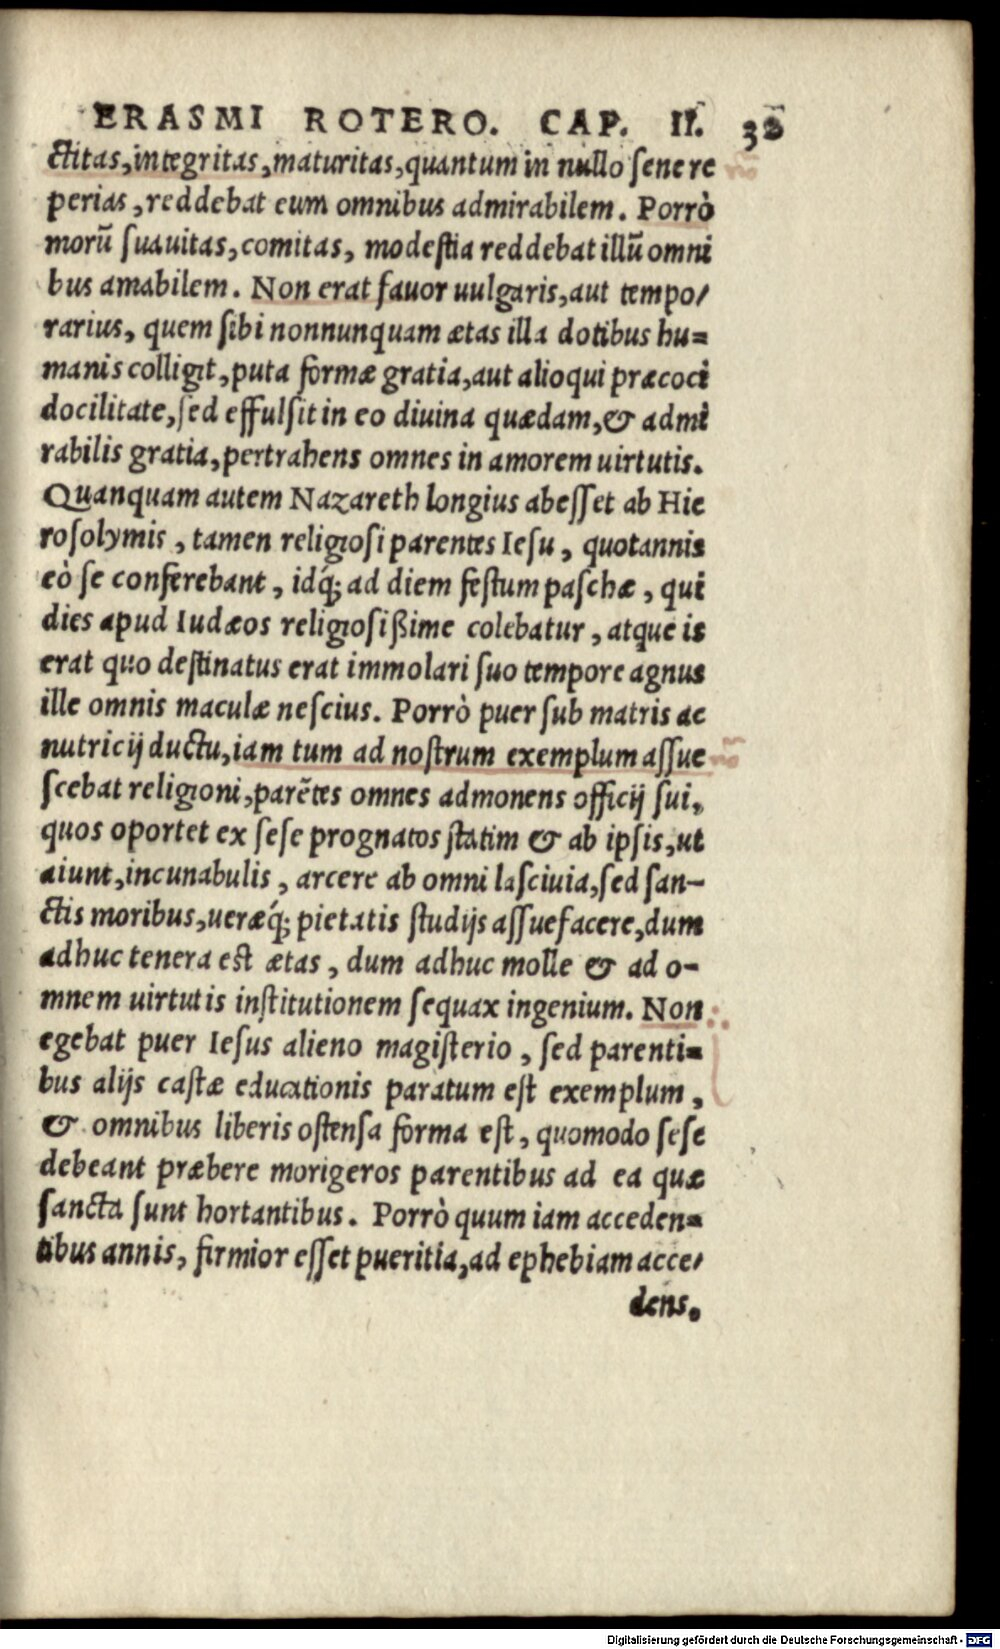 ERASMI ROTERO. CAP. II. 32
ctitas, integritas, maturitas, quantum in nullo sene re
perias, reddebat eum omnibus admirabilem. Porrò
morũ suauitas, comitas, modestia reddebat illũ omni
bus amabilem. Non erat fauor uulgaris, aut tempo/
rarius, quem sibi nonnunquam ætas illa dotibus hu=
manis colligit, puta formæ gratia, aut alioqui præcoci
docilitate, sed effulsit in eo diuina quædam, & admi
rabilis gratia, pertrahens omnes in amorem uirtutis.
Quanquam autem Nazareth longius abesset ab Hie
rosolymis, tamen religiosi parentes Iesu, quotannis
eò se conferebant, idq́; ad diem festum paschæ, qui
dies apud Iudæos religiosißime colebatur, atque is
erat quo destinatus erat immolari suo tempore agnus
ille omnis maculæ nescius. Porrò puer sub matris ac
nutricij ductu, iam tum ad nostrum exemplum assue
scebat religioni, parẽtes omnes admonens officij sui,
quos oportet ex sese prognatos statim & ab ipsis, ut
aiunt, incunabulis, arcere ab omni lasciuia, sed san-
ctis moribus, ueræq́; pietatis studijs assuefacere, dum
adhuc tenera est ætas, dum adhuc molle & ad o-
mnem uirtutis institutionem sequax ingenium. Non
egebat puer Iesus alieno magisterio, sed parenti=
bus alijs castæ educationis paratum est exemplum,
& omnibus liberis ostensa forma est, quomodo sese
debeant præbere morigeros parentibus ad ea quæ
sancta sunt hortantibus. Porrò quum iam acceden=
tibus annis, firmior esset pueritia, ad ephebiam acce/
dens.
Digitalisierung gefördert durch die Deutsche Forschungsgemeinschaft - DFG